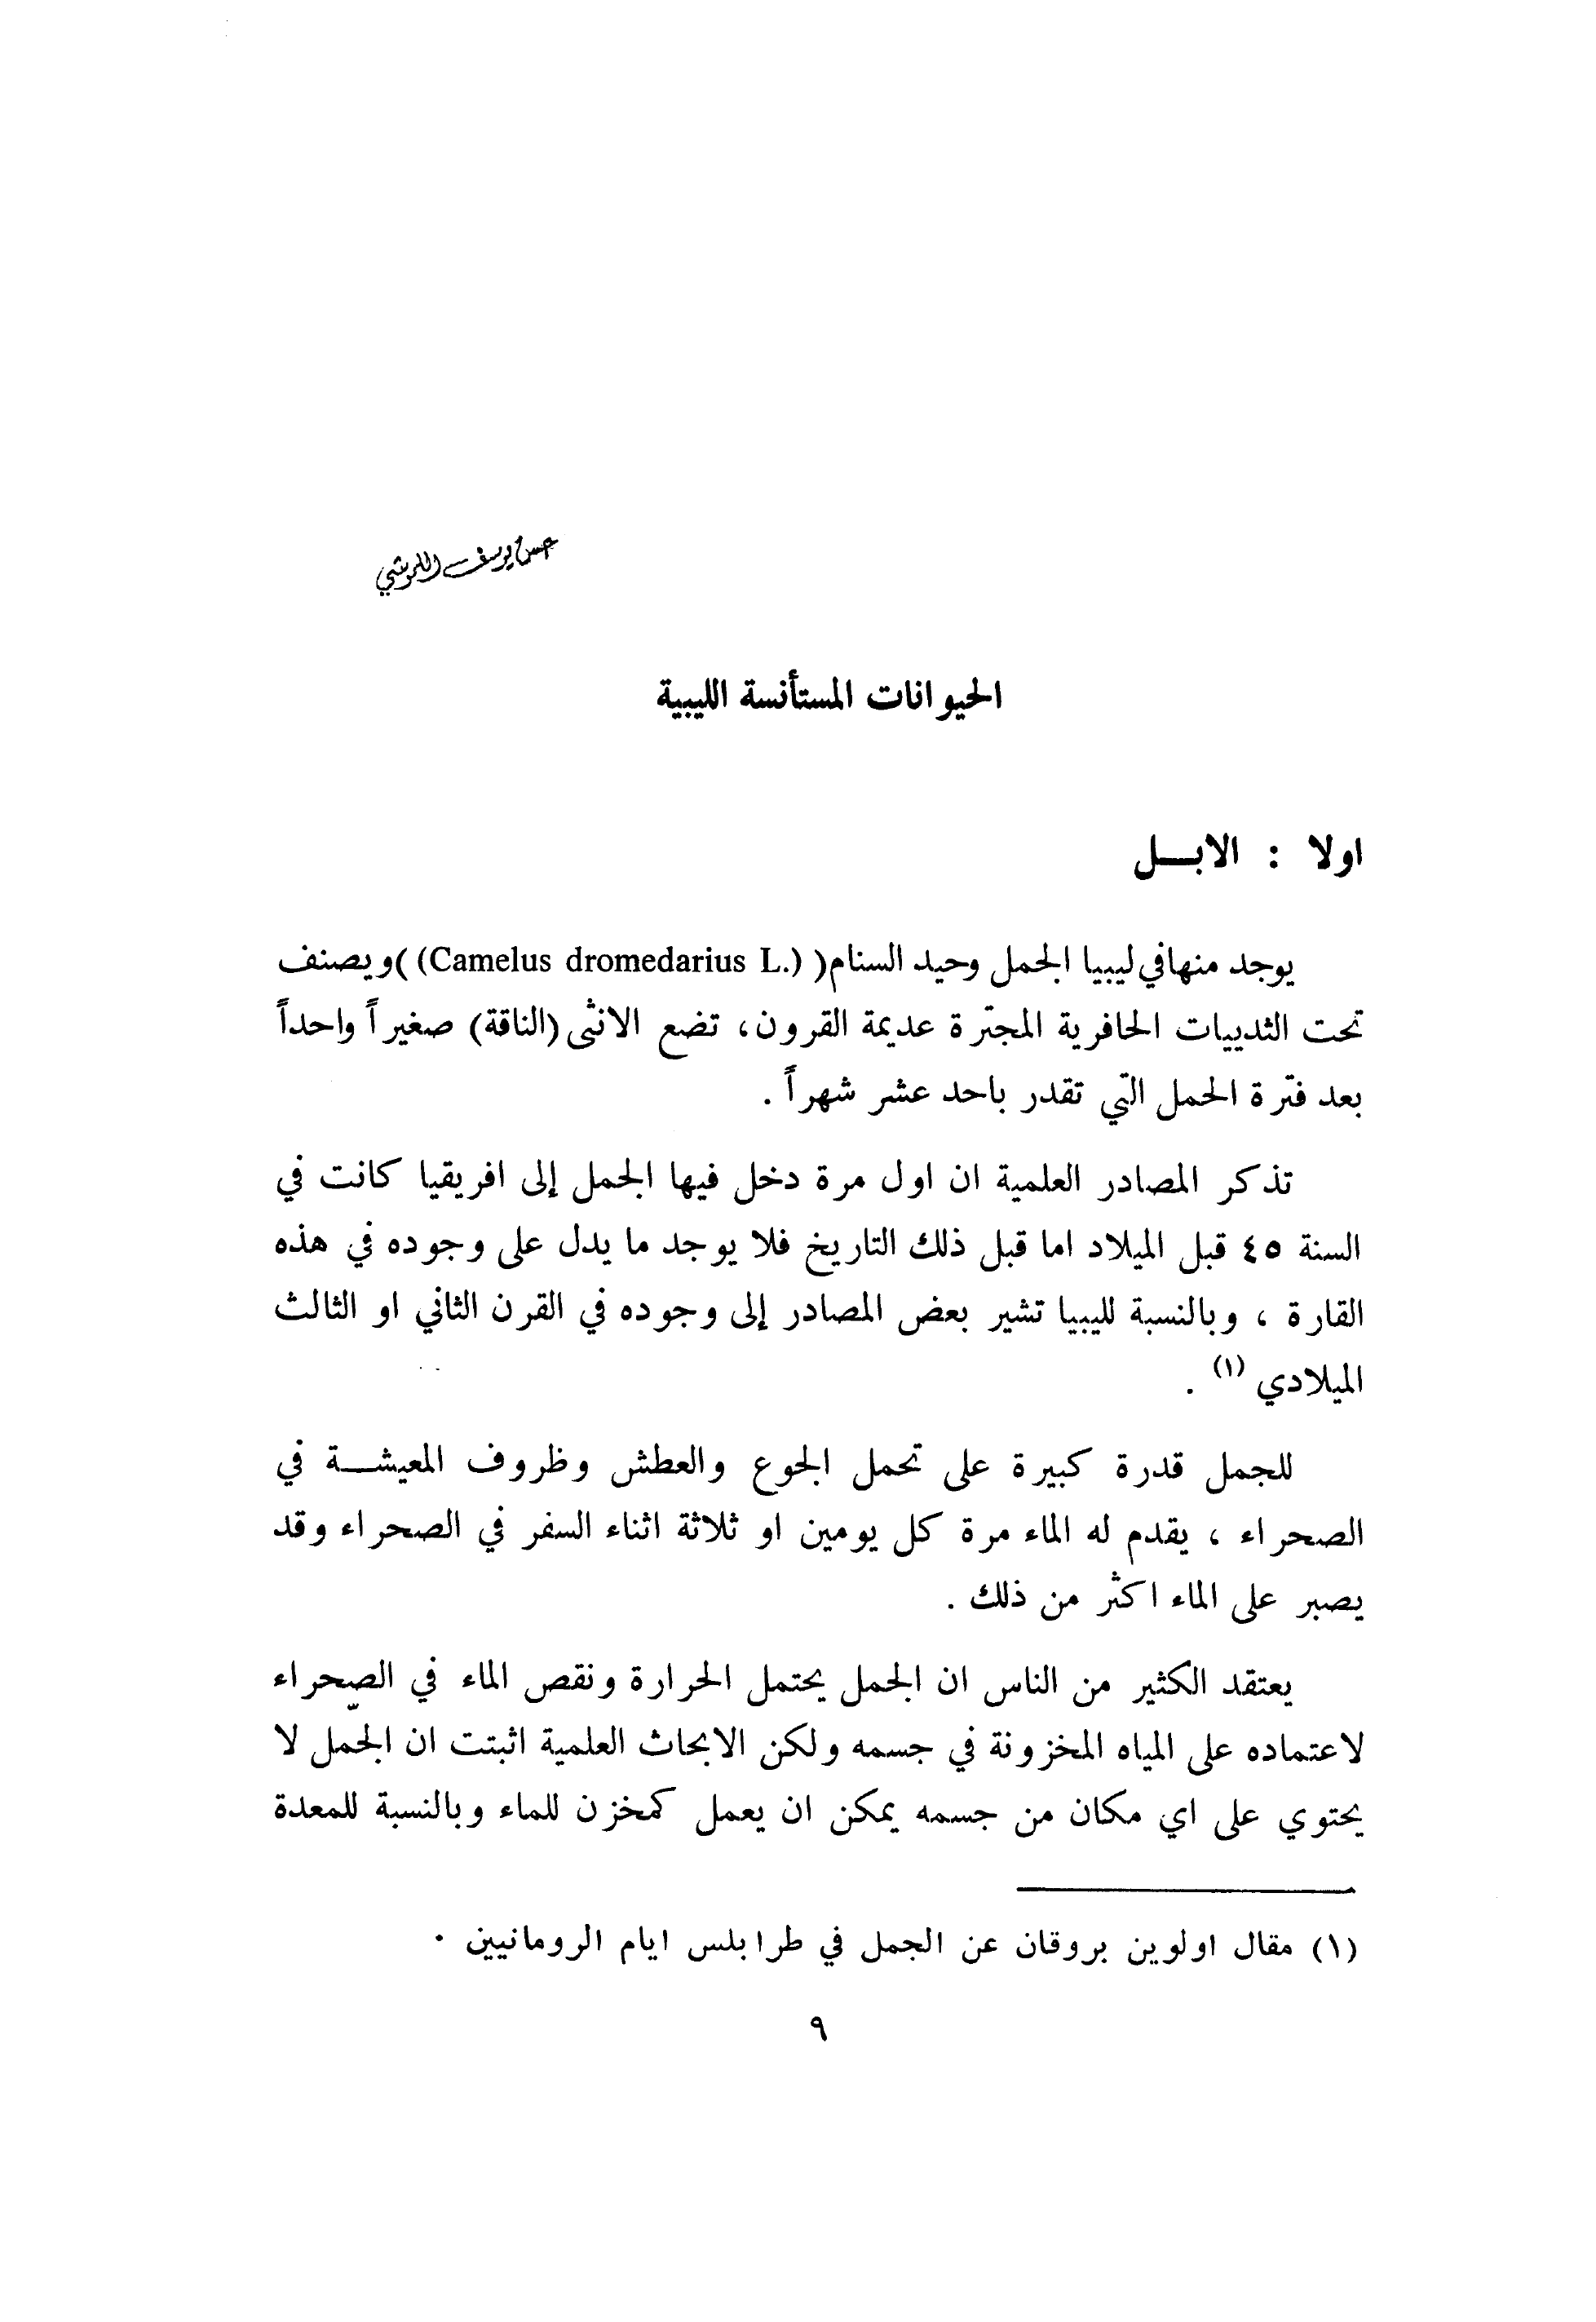 حسن يوسف اللموشي
الحيوانات المستأنسة الليبية
اولا : الابـــل
يوجد منها في ليبيا الجمل وحيد السنام( (Camelus dromedarius L.) )ويصنف
تحت الثدييات الحافرية المجترة عديمة القرون، تضع الانثى (الناقة) صغيراً واحداً
بعد فترة الحمل التي تقدر باحد عشر شهراً .
تذكر المصادر العلمية ان اول مرة دخل فيها الجمل إلى افريقيا كانت في
السنة ٤٥ قبل الميلاد اما قبل ذلك التاريخ فلا يوجد ما يدل على وجوده في هذه
القارة ، وبالنسبة لليبيا تشير بعض المصادر إلى وجوده في القرن الثاني او الثالث
الميلادي (١) .
للجمل قدرة كبيرة على تحمل الجوع والعطش وظروف المعيشـــة في
الصحراء ، يقدم له الماء مرة كل يومين او ثلاثة اثناء السفر في الصحراء وقد
يصبر على الماء اكثر من ذلك .
يعتقد الكثير من الناس ان الجمل يحتمل الحرارة ونقص الماء في الصحراء
لاعتماده على المياه المخزونة في جسمه ولكن الابحاث العلمية اثبتت ان الجمل لا
يحتوي على اي مكان من جسمه يمكن ان يعمل كمخزن للماء وبالنسبة للمعدة
(١) مقال اولوين بروقان عن الجمل في طرابلس ايام الرومانيين .
٩